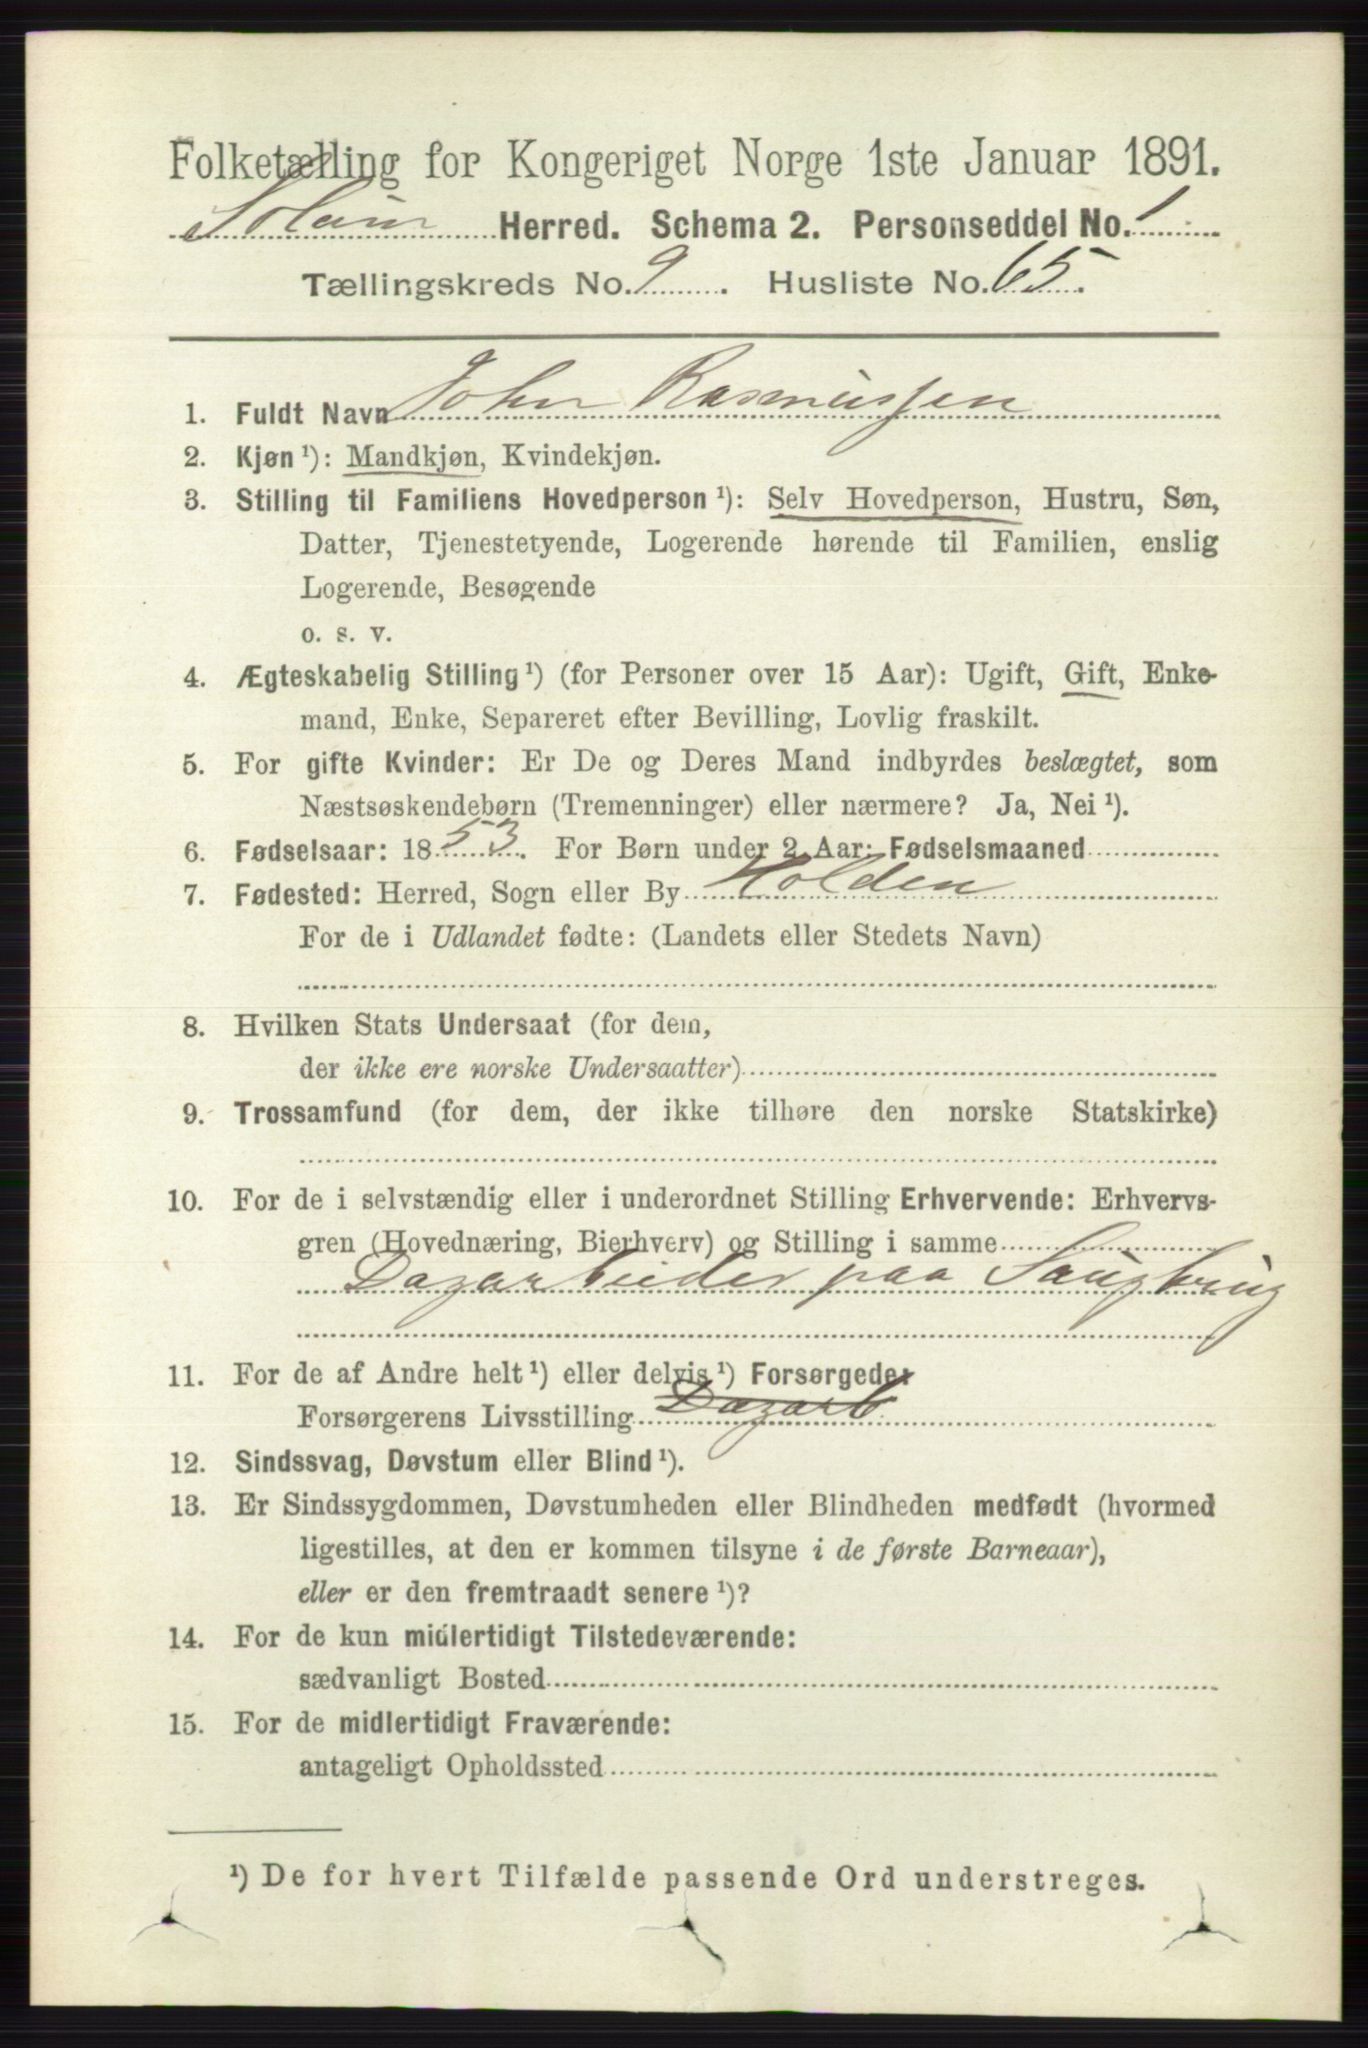 Folketælling for Kongeriget Norge 1ste Januar 1891.
Solum Herred. Schema 2. Personseddel No. 1
Tællingskreds No. 9. Husliste No. 65.
1. Fuldt Navn John Rasmussen
2. Kjøn ¹): Mandkjøn, Kvindekjøn.
3. Stilling til Familiens Hovedperson ¹): Selv Hovedperson, Hustru, Søn,
Datter, Tjenestetyende, Logerende hørende til Familien, enslig
Logerende, Besøgende
o. s. v.
4. Ægteskabelig Stilling ¹) (for Personer over 15 Aar): Ugift, Gift, Enke-
mand, Enke, Separeret efter Bevilling, Lovlig fraskilt.
5. For gifte Kvinder: Er De og Deres Mand indbyrdes beslægtet, som
Næstsøskendebørn (Tremenninger) eller nærmere? Ja, Nei ¹).
6. Fødselsaar: 1853. For Børn under 2 Aar: Fødselsmaaned
7. Fødested: Herred, Sogn eller By Holden
For de i Udlandet fødte: (Landets eller Stedets Navn)
8. Hvilken Stats Undersaat (for dem,
der ikke ere norske Undersaatter)
9. Trossamfund (for dem, der ikke tilhøre den norske Statskirke)
10. For de i selvstændig eller i underordnet Stilling Erhvervende: Erhvervs-
gren (Hovednæring, Bierhverv) og Stilling i samme
Dagarbeider paa Saugbrug
11. For de af Andre helt ¹) eller delvis ¹) Forsørgede:
Forsørgerens Livsstilling Dagarb
12. Sindssvag, Døvstum eller Blind ¹).
13. Er Sindssygdommen, Døvstumheden eller Blindheden medfødt (hvormed
ligestilles, at den er kommen tilsyne i de første Barneaar),
eller er den fremtraadt senere ¹)?
14. For de kun midlertidigt Tilstedeværende:
sædvanligt Bosted
15. For de midlertidigt Fraværende:
antageligt Opholdssted
¹) De for hvert Tilfælde passende Ord understreges.